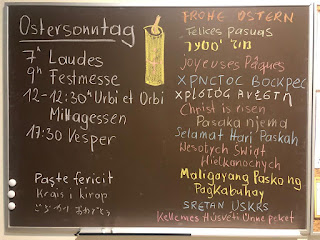 Ostersonntag
7h Laudes
9h Festmesse
12-12:30h Urbi et Orbi
Mittagessen
17:30 Vesper
Paște fericit
FROHE OSTERN
Felices Pascuas
Joyeuses Pâques
ХРИСТОС ВОСКРЕС
ΧΡΙΣΤΟΣ ΑΝΕΣΤΗ
Christ is risen
Pasaka njema
Selamat Hari Paskah
Wesołych Świąt
Wielkanocnych
Maligayang Pasko ng
Pagkabuhay
SRETAN USKRS
Kellemes Húsvéti Ünnepeket